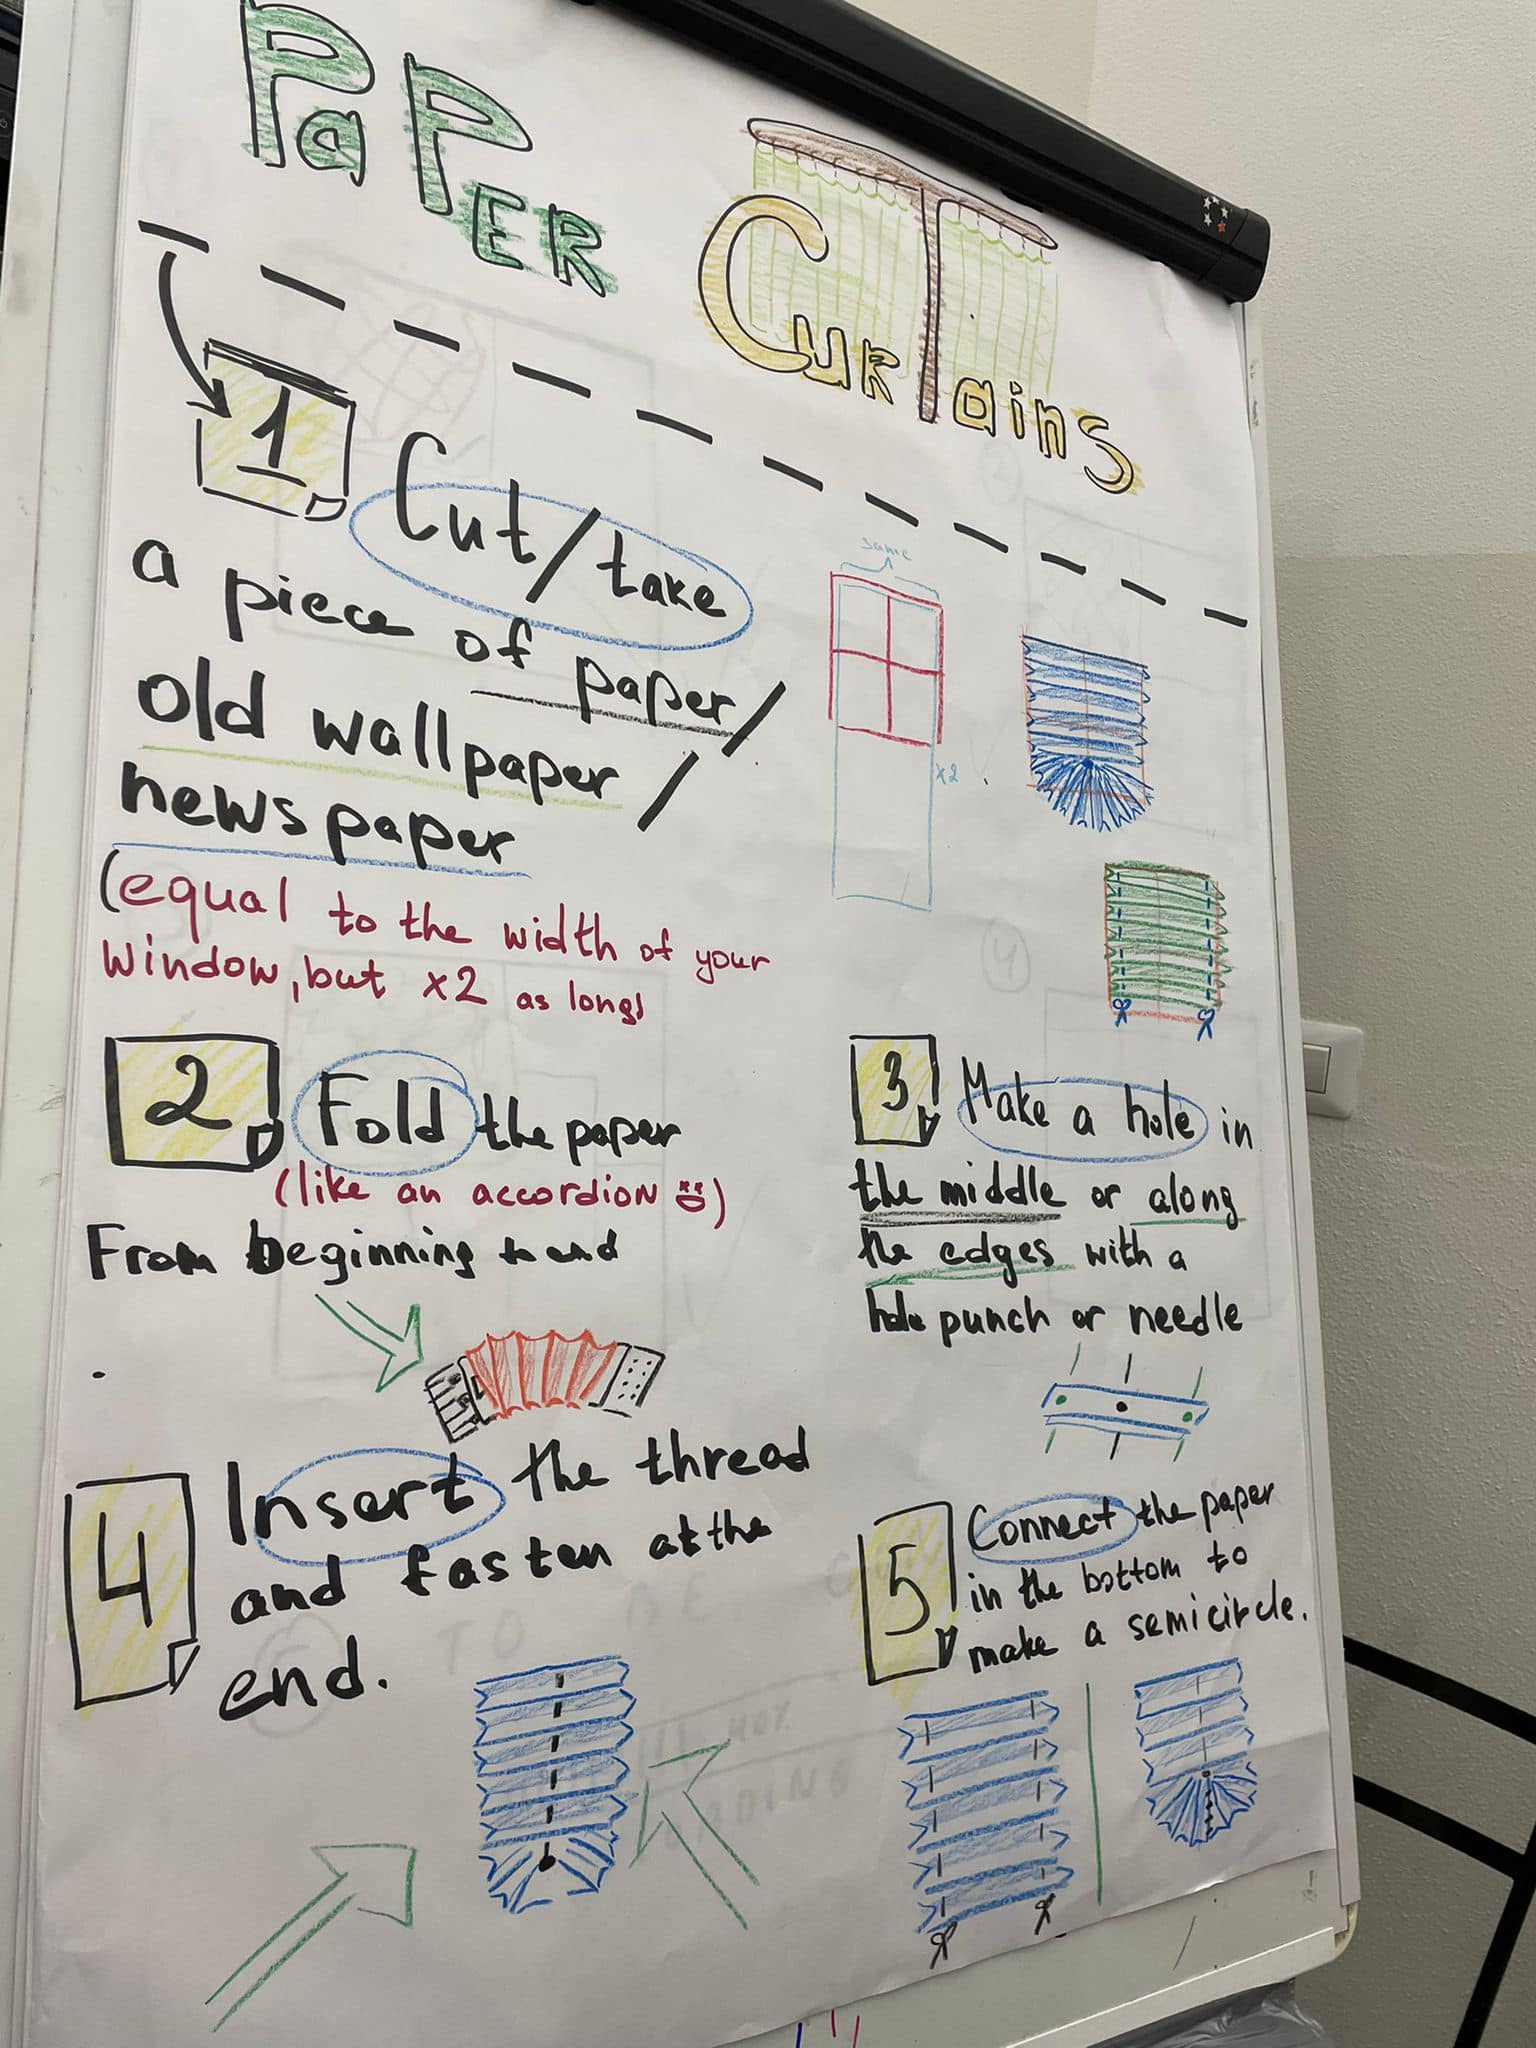 PaPER CurTains
1 Cut/take
a piece of paper/
old wallpaper/
newspaper
(equal to the width of your
window, but x2 as long)
same
x2
2 Fold the paper
(like an accordion)
From beginning to end
3 Make a hole in
the middle or along
the edges with a
hole punch or needle
4 Insert the thread
and fasten at the
end.
5 Connect the paper
in the bottom to
make a semicircle.